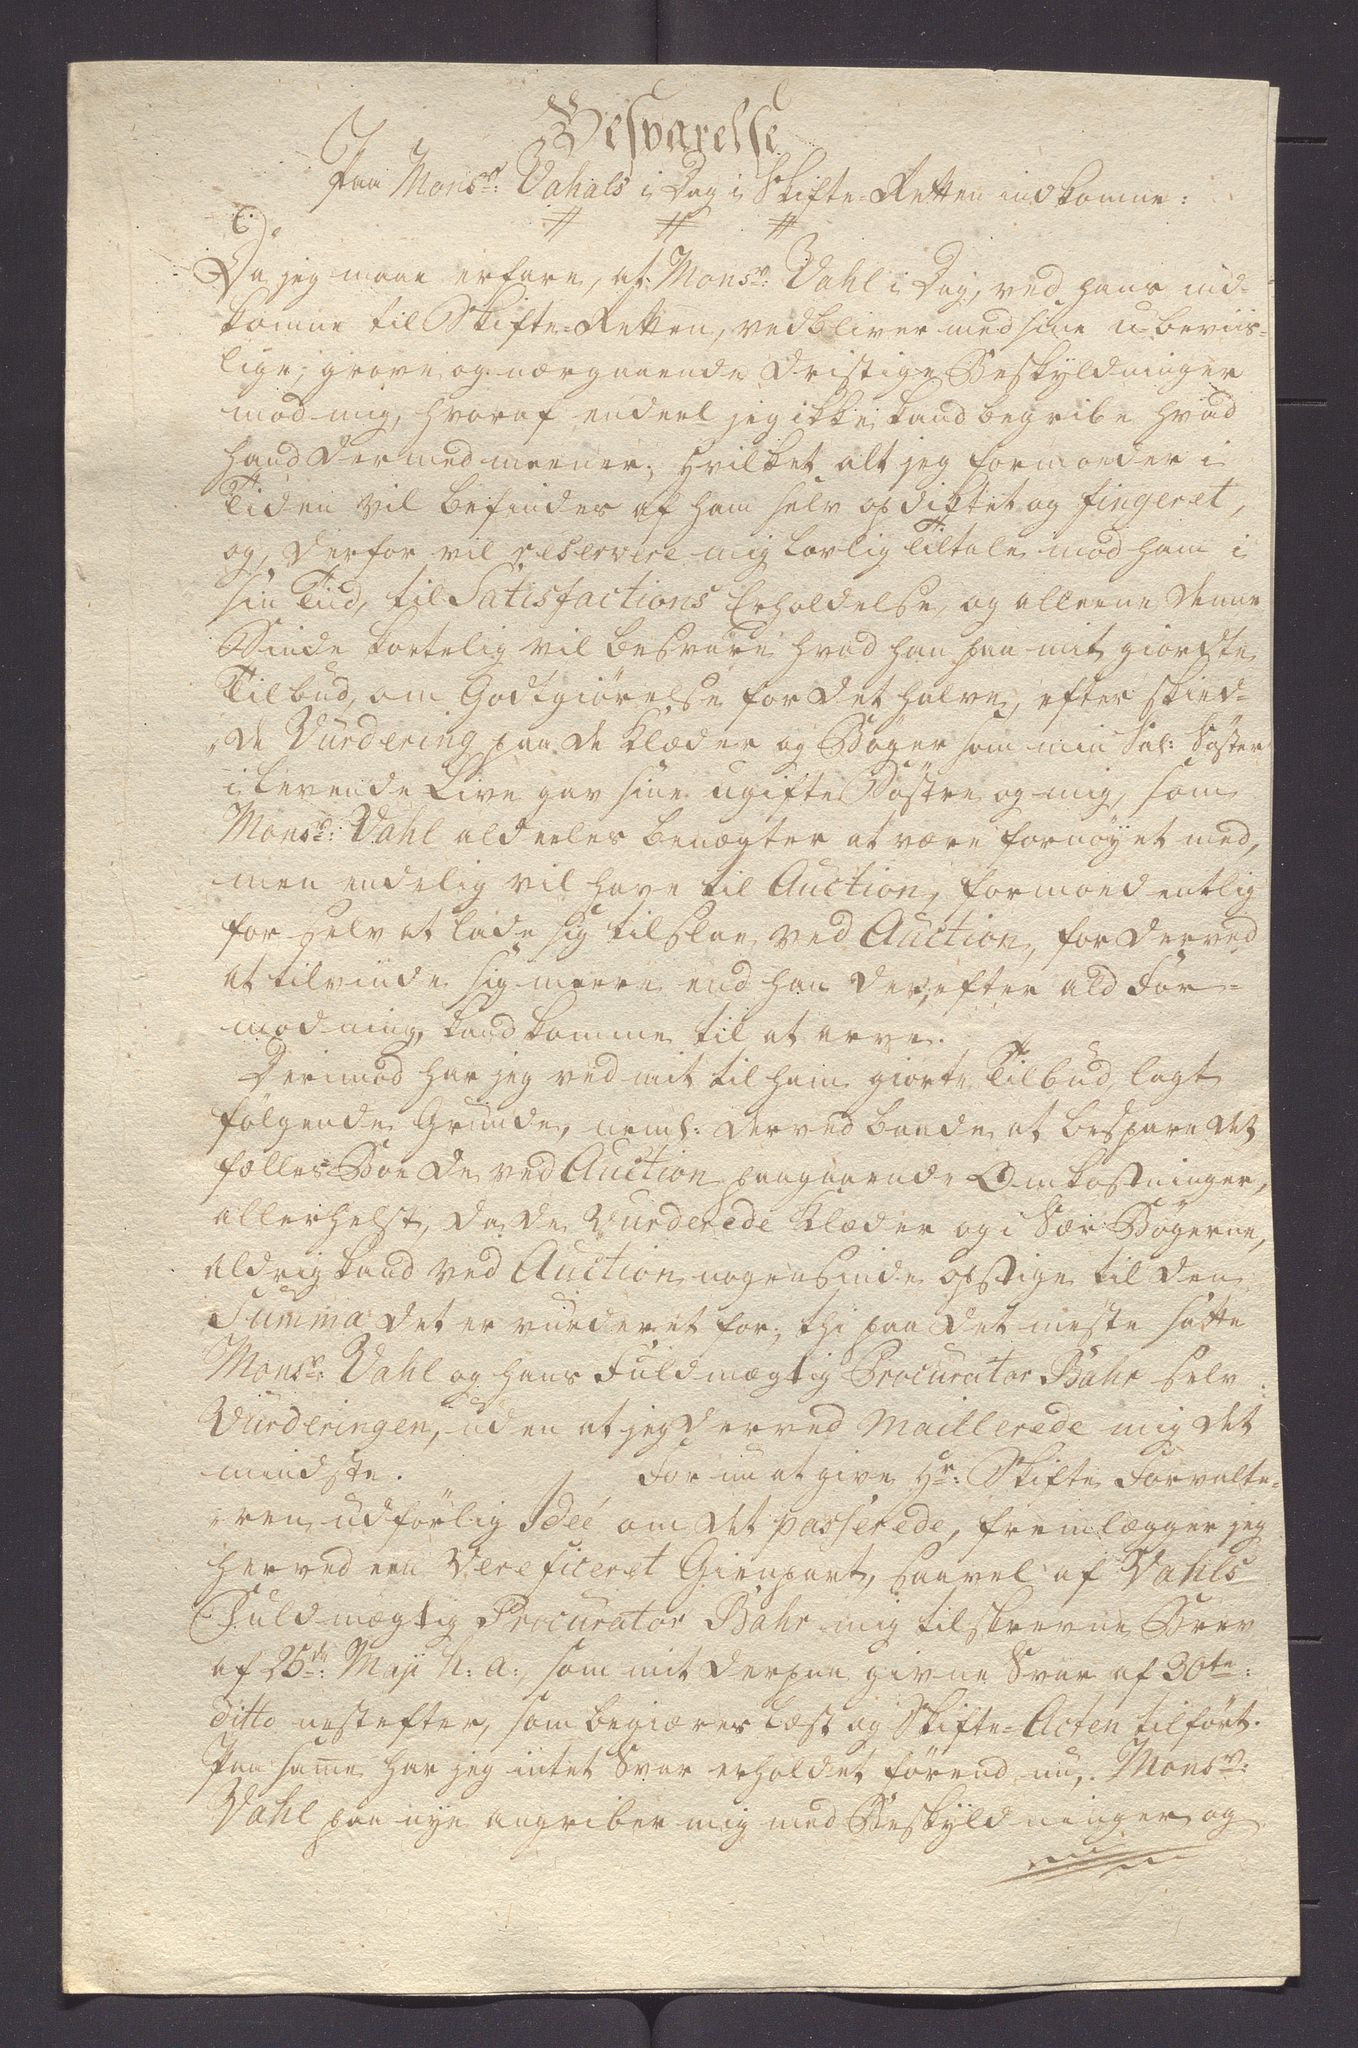 Besvarelse
Paa Monsr: Vahals i Dag i Skifte-Retten indkomne:
Da jeg maae erfare, at Monsr: Vahl i Dag, ved hans ind-
komne til Skifte-Retten, vedbliver med sine u-beviis-
lige, grove og nærgaaende dristige Beskyldninger
mod mig, hvoraf endeel jeg ikke kand begribe hvad
hand dermed meener; hvilket alt jeg formoeder i
Tiden vil befindes af ham selv opdiktet og fingeret,
og, derfor vil reservere mig lovlig Tiltale mod ham i
sin Tiid, til Satisfactions Erholdelse, og alleene denne
Sinde kortelig vil besvare hvad han paa mit giordte
Tilbud, om Godtgiörelse for det halve, efter skied-
de Vurdering paa de Klæder og Bøger som min Sal: Søster
i levende Live gav sine ugifte Søstre og mig, som
Monsr: Vahl aldeeles benægter at være fornøyet med,
men endelig vil have til Auction, formoedentlig
for selv at lade sig tilslaae ved Auction, for derved
at tilvinde sig meere end han derefter ald For-
modning kand komme til at arve.
Derimod har jeg ved mit til ham giorte Tilbud, lagt
følgende Grunde, neml: derved baade at bespare det
fælles Boe de ved Auction paagaaende Omkostninger,
allerhelst, da de Vurderede Klæder og i Sær Bøgerne,
aldrig kand ved Auction nogensinde opstige til den
Summa det er vurderet for; thi paa det meste satte
Monsr: Vahl og hans Fuldmægtig Procurator Bahr selv
Vurderingen, uden at jeg derved Maillerede mig det
mindste. For nu at give Hr: Skifte Forvalte-
ren udførlig Ideé om det passerede, fremlægger jeg
herved een Vereficeret Gienpart, saavel af Vahls
Fuldmægtig Procurator Bahr mig tilskrevne Brev
af 25de: Maji h: a:, som mit derpaa givne Svar af 30te:
ditto nestefter, som begiæres læst og Skifte-Acten tilført.
Paa same har jeg intet Svar erholdet førend nu, Monsr:
Vahl paa nye angriber mig med Beskyldninger og